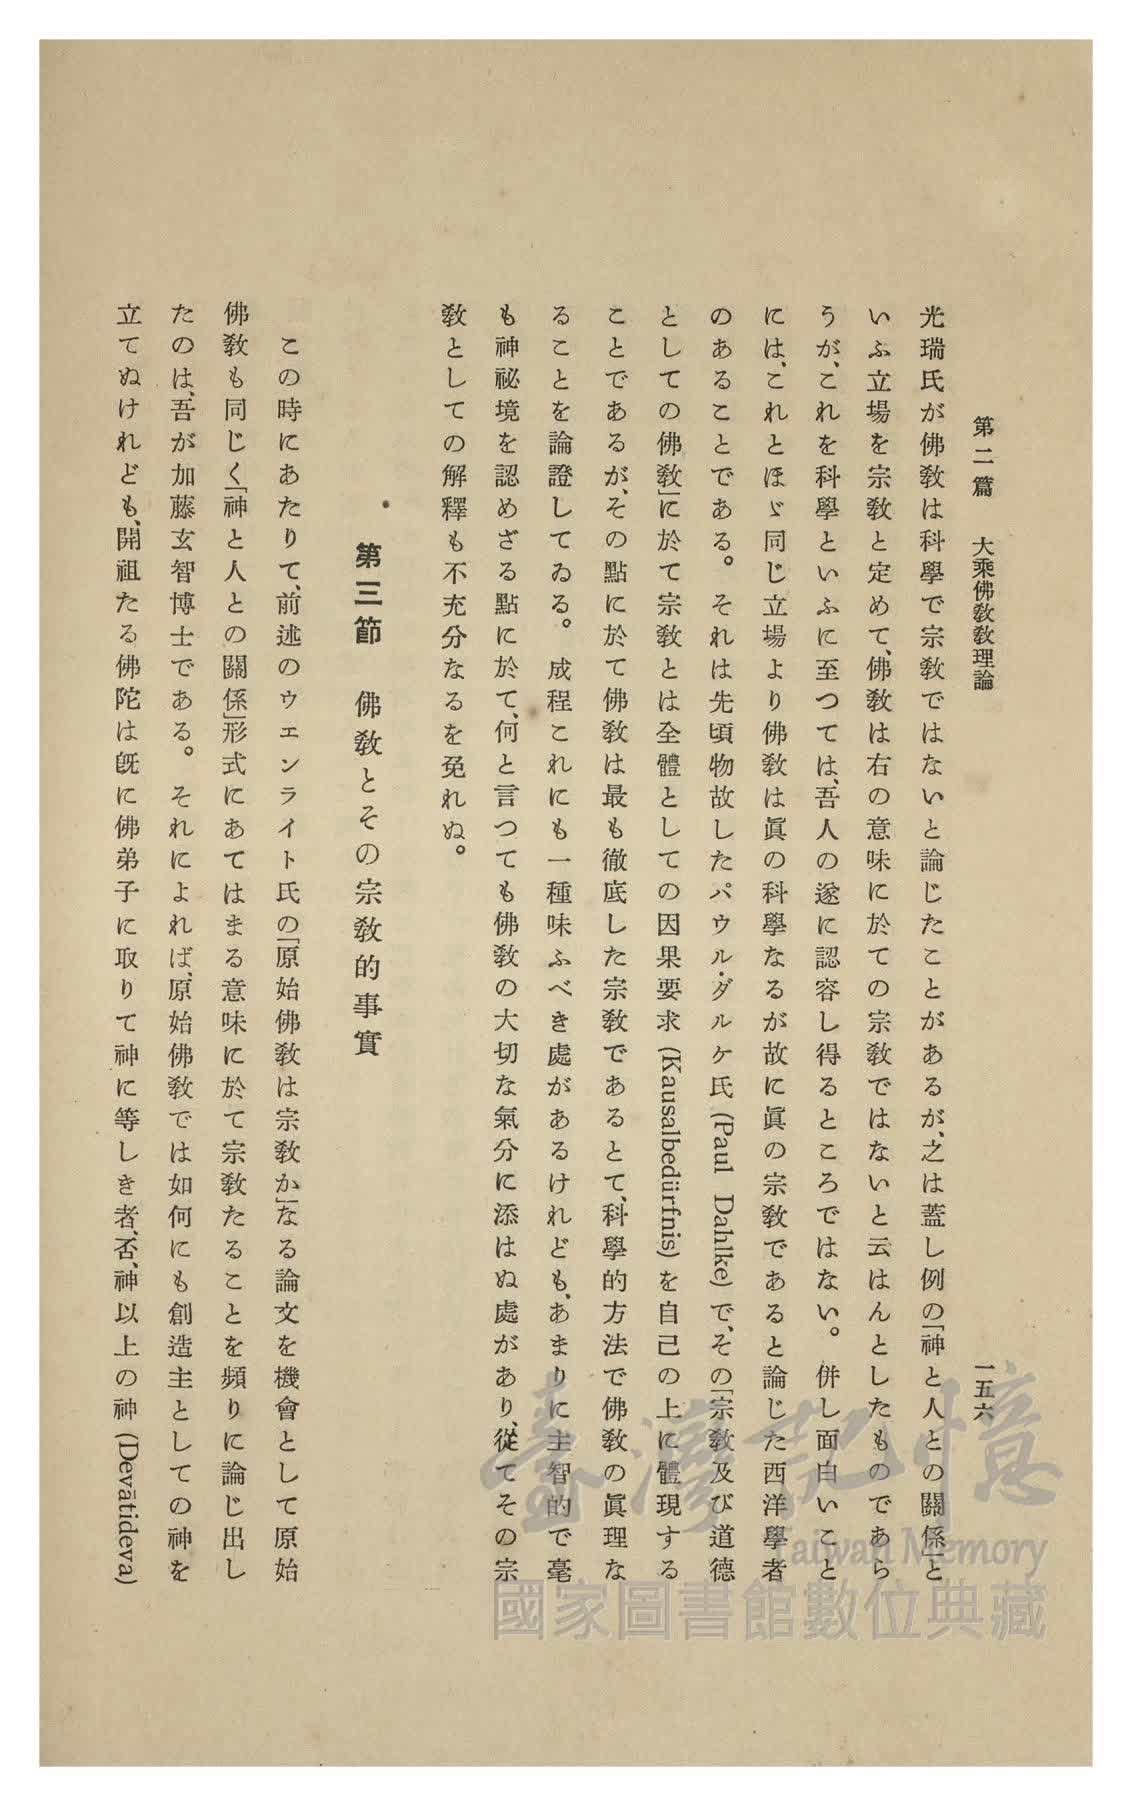 第二篇　大乘佛敎敎理論　一五六
光瑞氏が佛敎は科學で宗敎ではないと論じたことがあるが、之は蓋し例の「神と人との關係」と
いふ立場を宗敎と定めて、佛敎は右の意味に於ての宗敎ではないと云はんとしたものであら
うが、これを科學といふに至つては、吾人の遂に認容し得るところではない。併し面白いこと
には、これとほゞ同じ立場より佛敎は眞の科學なるが故に眞の宗敎であると論じた西洋學者
のあることである。それは先頃物故したパウル・ダルケ氏 (Paul Dahlke) で、その「宗敎及び道德
としての佛敎」に於て宗敎とは全體としての因果要求 (Kausalbedürfnis) を自己の上に體現する
ことであるが、その點に於て佛敎は最も徹底した宗敎であるとて、科學的方法で佛敎の眞理な
ることを論證してゐる。成程これにも一種味ふべき處があるけれども、あまりに主智的で毫
も神祕境を認めざる點に於て、何と言つても佛敎の大切な氣分に添はぬ處があり、從てその宗
敎としての解釋も不充分なるを免れぬ。
第三節　佛敎とその宗敎的事實
この時にあたりて、前述のウエンライト氏の「原始佛敎は宗敎か」なる論文を機會として原始
佛敎も同じく「神と人との關係」形式にあてはまる意味に於て宗敎たることを頻りに論じ出し
たのは、吾が加藤玄智博士である。それによれば、原始佛敎では如何にも創造主としての神を
立てぬけれども、開祖たる佛陀は旣に佛弟子に取りて神に等しき者、否、神以上の神 (Devātideva)
臺灣記憶
Taiwan Memory
國家圖書館數位典藏